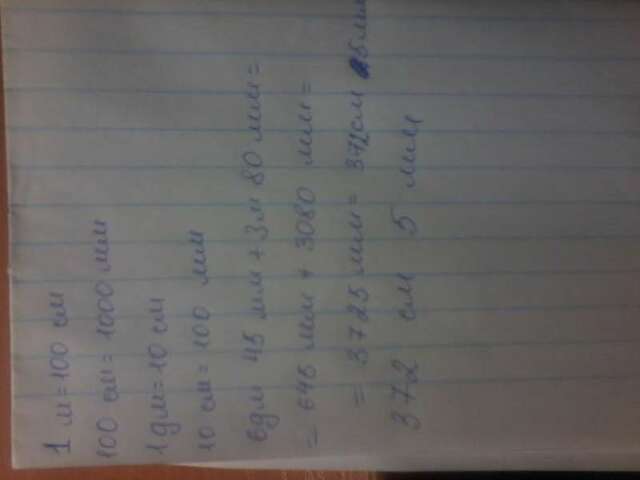 1 м = 100 см
100 см = 1000 мм
1 дм = 10 см
10 см = 100 мм
6дм 45 мм + 3м 80 мм =
= 645 мм + 3080 мм =
= 3725 мм = 372см 5мм
372 см 5 мм